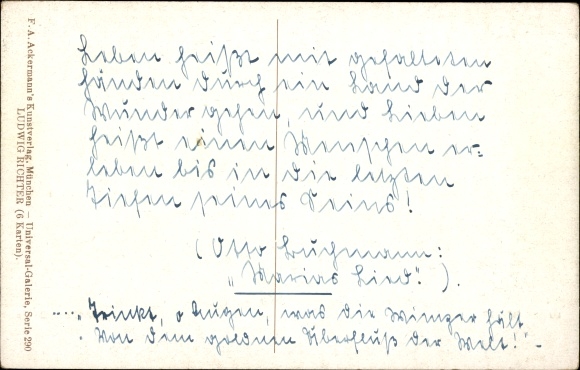 Leben heißt mit gefalteten
Händen durch ein Land der
Wunder gehen, und Lieben
heißt einen Menschen er-
leben bis in die letzten
Tiefen seines Seins!
(Otto Buchmann:
"Marias Lied").
...."Trinkt, o Augen, was die Wimper hält
Von dem goldnen Überfluß der Welt!"-
F. A. Ackermann's Kunstverlag, München — Universal-Galerie, Serie 290
LUDWIG RICHTER (6 Karten).